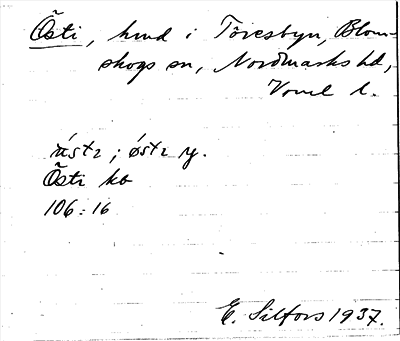 Östi, hmd i Töresbyn, Blom-
skogs sn, Nordmarks hd,
Värml l.
östɩ ; östɩ y.
Östi kb
106:16
E. Silfors 1937.